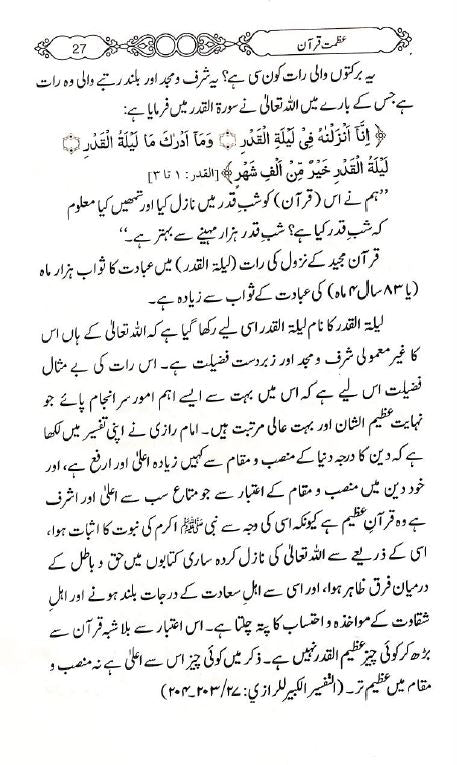 عظمت قرآن
27
یہ برکتوں والی رات کون سی ہے؟ یہ شرف و مجد اور بلند رتبے والی وہ رات
ہے جس کے بارے میں اللہ تعالیٰ نے سورۃ القدر میں فرمایا ہے:
﴿ اِنَّاۤ اَنْزَلْنٰهُ فِیْ لَیْلَةِ الْقَدْرِ ۝ وَمَاۤ اَدْرٰىكَ مَا لَیْلَةُ الْقَدْرِ ۝
لَیْلَةُ الْقَدْرِ خَیْرٌ مِّنْ اَلْفِ شَهْرٍ ﴾ [القدر: ۱ تا ۳]
’’ہم نے اس (قرآن) کو شبِ قدر میں نازل کیا اور تمھیں کیا معلوم
کہ شبِ قدر کیا ہے؟ شبِ قدر ہزار مہینے سے بہتر ہے۔‘‘
قرآن مجید کے نزول کی رات (لیلۃ القدر) میں عبادت کا ثواب ہزار ماہ
(یا ۸۳ سال ۴ ماہ) کی عبادت کے ثواب سے زیادہ ہے۔
لیلۃ القدر کا نام لیلۃ القدر اسی لیے رکھا گیا ہے کہ اللہ تعالیٰ کے ہاں اس
کا غیر معمولی شرف و مجد اور زبردست فضیلت ہے۔ اس رات کی بے مثال
فضیلت اس لیے ہے کہ اس میں بہت سے ایسے اہم امور سرانجام پائے جو
نہایت عظیم الشان اور بہت عالی مرتبت ہیں۔ امام رازی نے اپنی تفسیر میں لکھا
ہے کہ دین کا درجہ دنیا کے منصب و مقام سے کہیں زیادہ اعلیٰ اور ارفع ہے، اور
خود دین میں منصب و مقام کے اعتبار سے جو متاع سب سے اعلیٰ اور اشرف
ہے وہ قرآنِ عظیم ہے کیونکہ اسی کی وجہ سے نبی ﷺ اکرم کی نبوت کا اثبات ہوا،
اسی کے ذریعے سے اللہ تعالیٰ کی نازل کردہ ساری کتابوں میں حق و باطل کے
درمیان فرق ظاہر ہوا، اور اسی سے اہلِ سعادت کے درجات بلند ہونے اور اہلِ
شقاوت کے مواخذہ و احتساب کا پتہ چلتا ہے۔ اس اعتبار سے بلاشبہ قرآن سے
بڑھ کر کوئی چیز عظیم القدر نہیں ہے۔ ذکر میں کوئی چیز اس سے اعلیٰ ہے نہ منصب و
مقام میں عظیم تر۔ (التفسیر الکبیر للرازي: ۲۷/۲۰۳۔۲۰۴)